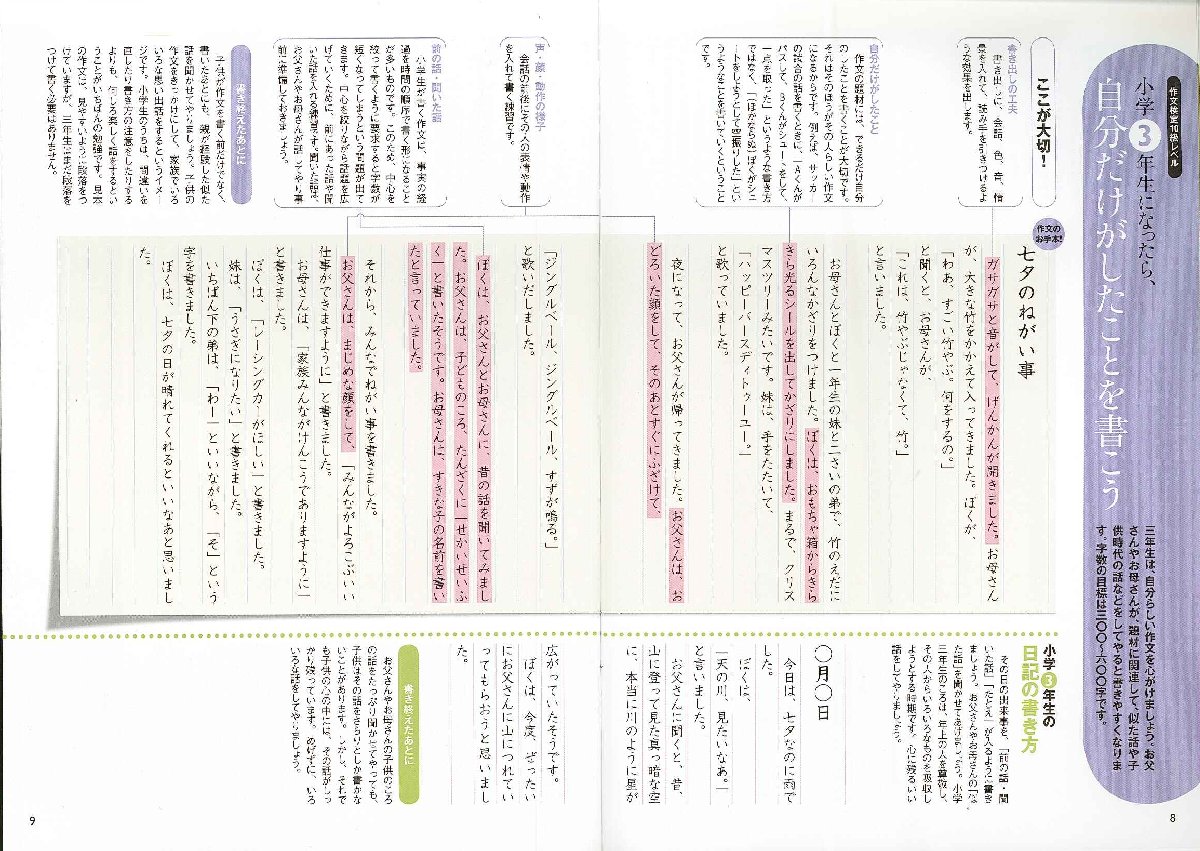 作文検定10級レベル
小学3年生になったら、
自分だけがしたことを書こう
三年生は、自分らしい作文を心がけましょう。お父
さんやお母さんが、題材に関連して、似た話や子
供時代の話などをしてやると書きやすくなりま
す。字数の目標は三〇〇～六〇〇字です。
ここが大切!
書き出しの工夫
書き出しに、会話、色、音、情
景を入れて、読み手を引きつけるよ
うな効果を出します。
自分だけがしたこと
作文の題材には、できるだけ自分
のしたことを書くことが大切です。
それはそのほうがその人らしい作文
になるからです。例えば、サッカー
の試合の話を書くときに、「Aくんが
パスして、Bくんがシュートをして、
一点を取った」というような書き方
ではなく、「(ほかならぬ)ぼくがシュ
ートをしようとして空振りした」とい
うようなことを書いていくということ
です。
声・顔・動作の様子
会話の前後にその人の表情や動作
を入れて書く練習です。
前の話・聞いた話
小学生が書く作文は、事実の経
過を時間の順序で書く形になること
が多いものです。このため、中心を
絞って書くように要求すると字数が
短くなってしまうという問題が出て
きます。中心を絞りながら話題を広
げていくために、前にあった話や聞
いた話を入れる練習です。聞いた話は、
お父さんやお母さんが話してやり事
前に準備しておきましょう。
書き終えたあとに
子供が作文を書く前だけでなく、
書いたあとにも、親が経験した似た
話を聞かせてやりましょう。子供の
作文をきっかけにして、家族でいろ
いろな思い出話をするというイメー
ジです。小学生のうちは、間違いを
直したり書き方の注意をしたりする
よりも、何しろ楽しく話をするとい
うことがいちばんの勉強です。見本
の作文は、見やすいように段落をつ
けていますが、三年生はまだ段落を
つけて書く必要はありません。
作文の
お手本!
七夕のねがい事
ガサガサと音がして、げんかんが開きました。お母さん
が、大きな竹をかかえて入ってきました。ぼくが、
「わあ、すごい竹やぶ。何をするの。」
と聞くと、お母さんが、
「これは、竹やぶじゃなくて、竹。」
と言いました。
お母さんとぼくと一年生の妹と二さいの弟で、竹のえだに
いろんなかざりをつけました。ぼくは、おもちゃ箱からき
きら光るシールを出してかざりにしました。まるで、クリス
マスツリーみたいです。妹は、手をたたいて、
「ハッピーバースディトゥーユー。」
と歌っていました。
夜になって、お父さんが帰ってきました。お父さんは、お
どろいた顔をして、そのあとすぐにふざけて、
「ジングルベール、ジングルベール、すずが鳴る。」
と歌いだしました。
ぼくは、お父さんとお母さんに、昔の話を聞いてみまし
た。お父さんは、子どものころ、たんざくに「せかいせいふ
く」と書いたそうです。お母さんは、すきな子の名前を書い
たと言っていました。
それから、みんなでねがい事を書きました。
お父さんは、まじめな顔をして、「みんながよろこぶいい
仕事ができますように」と書きました。
お母さんは、「家族みんながけんこうでありますように」
と書きました。
ぼくは、「レーシングカーがほしい」と書きました。
妹は、「うさぎになりたい」と書きました。
いちばん下の弟は、「わー」といいながら、「そ」という
字を書きました。
ぼくは、七夕の日が晴れてくれるといいなあと思いまし
た。
小学3年生の
日記の書き方
その日の出来事を、「前の話・聞
いた話」「たとえ」が入るように書き
ましょう。お父さんやお母さんの「似
た話」を聞かせてあげましょう。小学
三年生のころは、年上の人を尊敬し、
その人からいろいろなものを吸収し
ようとする時期です。心に残るいい
話をしてやりましょう。
〇月〇日
今日は、七夕なのに雨で
した。
ぼくは、
「天の川、見たいなあ。」
と言いました。
お父さんに聞くと、昔、
山に登って見た真っ暗な空
に、本当に川のように星が
広がっていたそうです。
ぼくは、今度、ぜったい
にお父さんに山につれてい
ってもらおうと思いまし
た。
書き終えたあとに
お父さんやお母さんの子供のころ
の話をたっぷり聞かせてやっても、
子供はその話をさらりとしか書かな
いことがあります。しかし、それで
も子供の心の中には、その話がしっ
かり残っています。めげずに、いろ
いろな話をしてやりましょう。
8
9